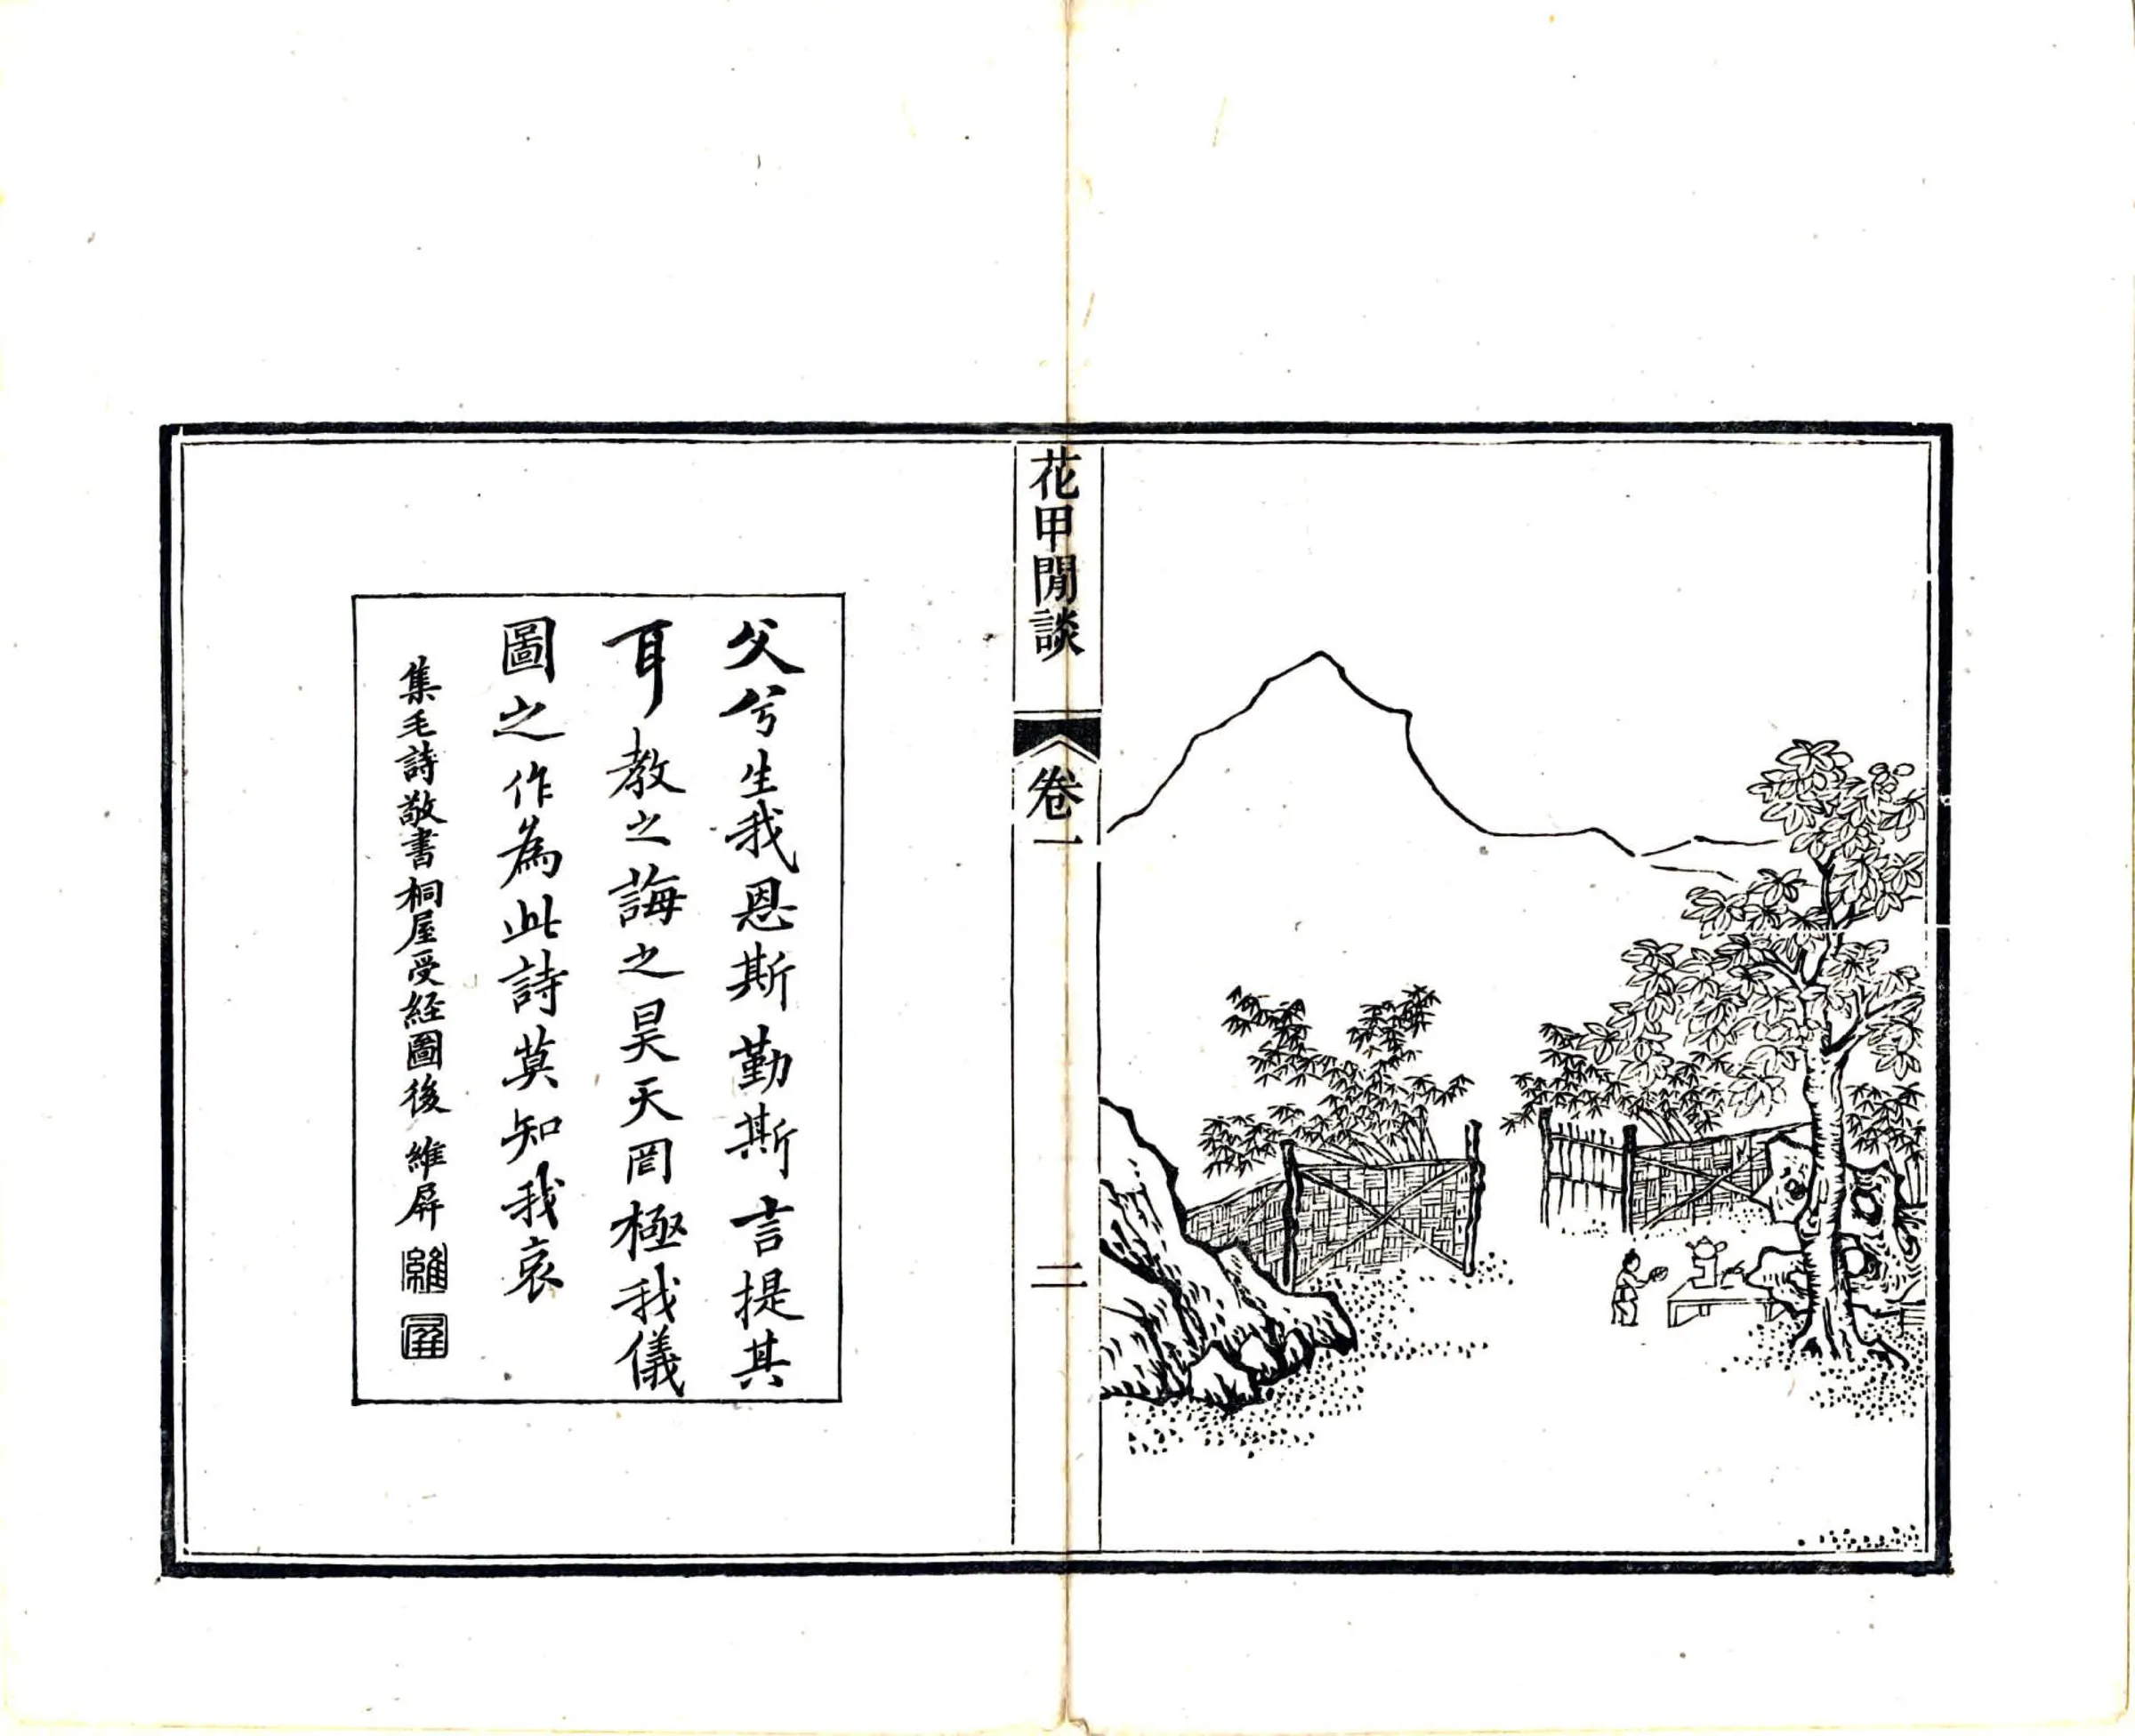 花甲閒談
卷一
二
父兮生我恩斯勤斯言提其
耳教之誨之昊天罔極我儀
圖之作為此詩莫知我哀
集毛詩敬書桐屋受經圖後 維屏
維
屏